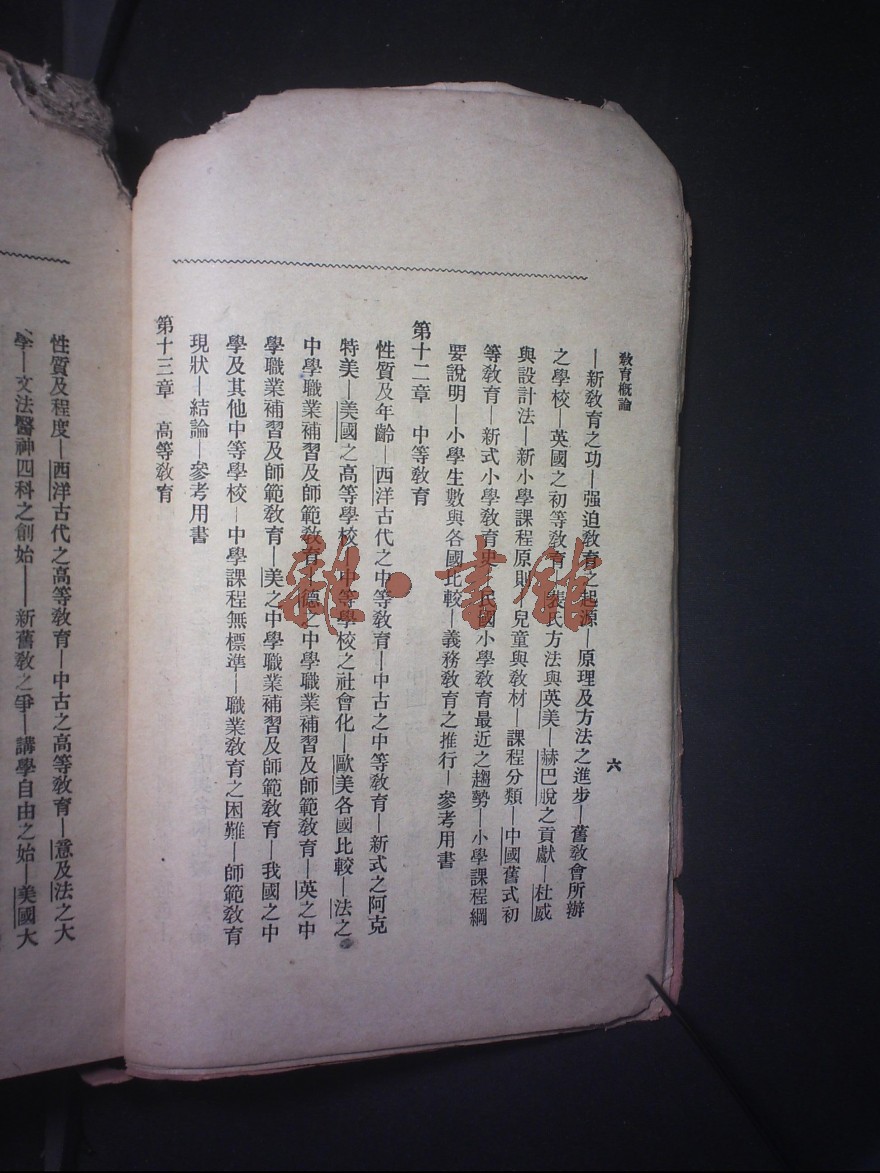 教育概論
六
—新教育之功—强迫教育之起源—原理及方法之進步—舊教會所辦
之學校—英國之初等教育—裴氏方法與英美—赫巴脫之貢獻—杜威
與設計法—新小學課程原則—兒童與教材—課程分類—中國舊式初
等教育—新式小學教育史—民國小學教育最近之趨勢—小學課程綱
要說明—小學生數與各國比較—義務教育之推行—參考用書
第十二章 中等教育
性質及年齡—西洋古代之中等教育—中古之中等教育—新式之阿克
特美—美國之高等學校—中等學校之社會化—歐美各國比較—法之
中學職業補習及師範教育—德之中學職業補習及師範教育—英之中
學職業補習及師範教育—美之中學職業補習及師範教育—我國之中
學及其他中等學校—中學課程無標準—職業教育之困難—師範教育
現狀—結論—參考用書
第十三章 高等教育
性質及程度—西洋古代之高等教育—中古之高等教育—意及法之大
學—文法醫神四科之創始—新舊教之爭—講學自由之始—美國大
雜·書館